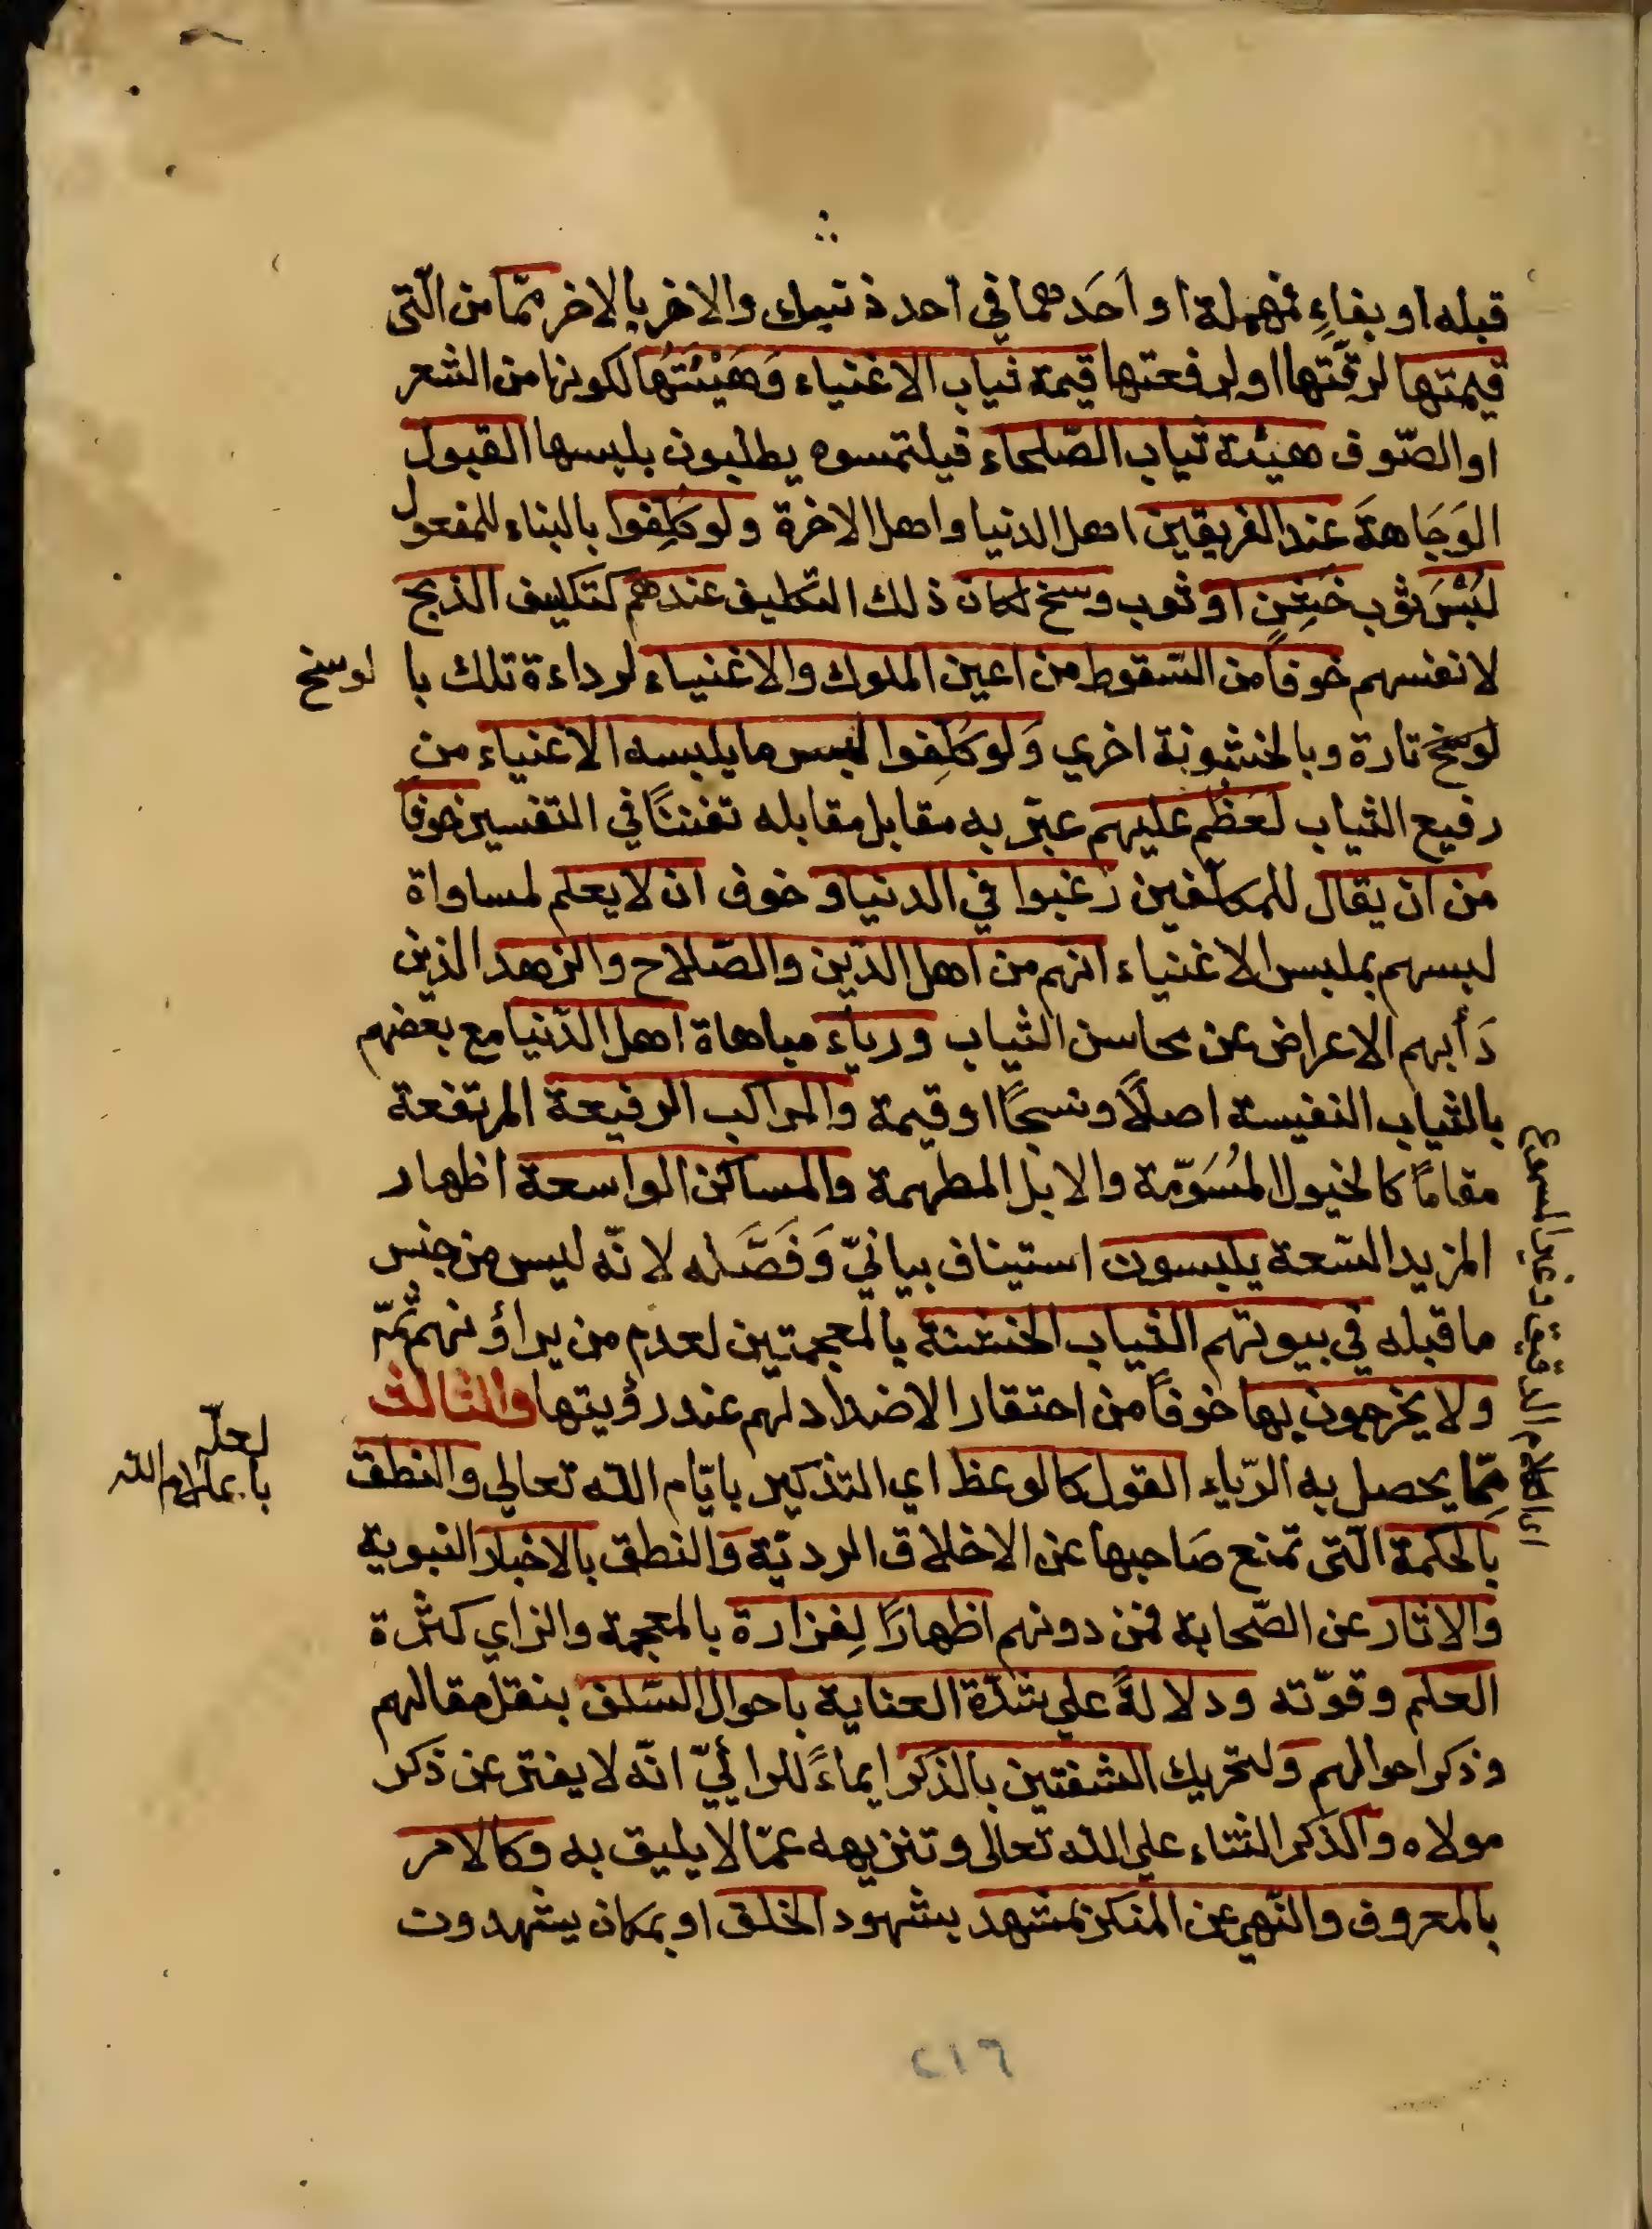 قبله او بفاءٍ مهملة او اَحَدهما في احد ذنيك والاخر بالاخر ممّا من الّتى
قيمتها لرقّتها او لرفعتها قيمة ثياب الاغنياء وَهَيْئَتُها لكونها من الشعر
او الصّوف هيئة ثياب الصّلحاء فيلتمسوه يطلبون بلبسها القبول
الوَجَاهةَ عند الفريقين اهل الدنيا واهل الاخرة ولو كُلِّفوا بالبناء للمفعول
لُبْسَ ثوب خَشِنٍ او ثوب وسخ لكان ذلك التكليف عندهم كتكليف الذبح
لانفسهم خوفاً من السّقوط من اعين الملوك والاغنياء لرداءة تلك با لوسخ
لوسَخ تارة وبالخشونة اخري وَلو كُلِّفوا لبس ما يلبسه الاغنياء من
رفيع الثياب لعَظُم عليهم عبّر به مقابل مقابله تفننًا في التفسير خوفا
من ان يقال للمكلّفين رَغبوا في الدنيا و خوف ان لا يعلم لمساواة
لبسهم بملبس الاغنياء انهم من اهل الدّين والصّلاح والزهد الذين
دَأبهم الاعراض عن محاسن الثياب ورياء مباهاة اهل الدّنيا مع بعضهم
بالثياب النفيسة اصلاً ونسجًا او قيمة والمراكب الرفيعة المرتفعة
مقامًا كالخيول المُسَوّمة والابل المطهمة والمساكن الواسعة اظهار
المزيد السّعة يلبسون استيناف بيانيّ وَفَصَله لانّه ليس من جنس
ما قبله في بيوتهم الثياب الخشنة بالمعجمتين لعدم من يراؤنهم ثمّ
ولا يخرجون بها خوفاً من احتقار الاضداد لهم عند رؤيتها والثالث
ممّا يحصل به الرّياء القول كالوعظ اي التذكير بايّام الله تعالي والنطق
لعلّه
بالحكمة الّتى تمنع صَاحبها عن الاخلاق الرديّة وَالنطق بالاخبار النبوية
والاثار عن الصّحابة فمن دونهم اظهارًا لِغزارة بالمعجمة والزاي كثرة
العلم وقوّته ودلالةً علي شدّة العناية باحوال السّلف بنقل مقالهم
وذكر احوالهم ولتحريك الشفتين بالذكر ايماءً للرائيّ انّه لا يفتر عن ذكر
مولاه والذكر الثناء علي الله تعالى وتنزيهه عمّا لا يليق به وكالامر
بالمعروف والنّهي عن المنكر بمشهد بشهود الخلق او بمكان يشهدون
٢١٦